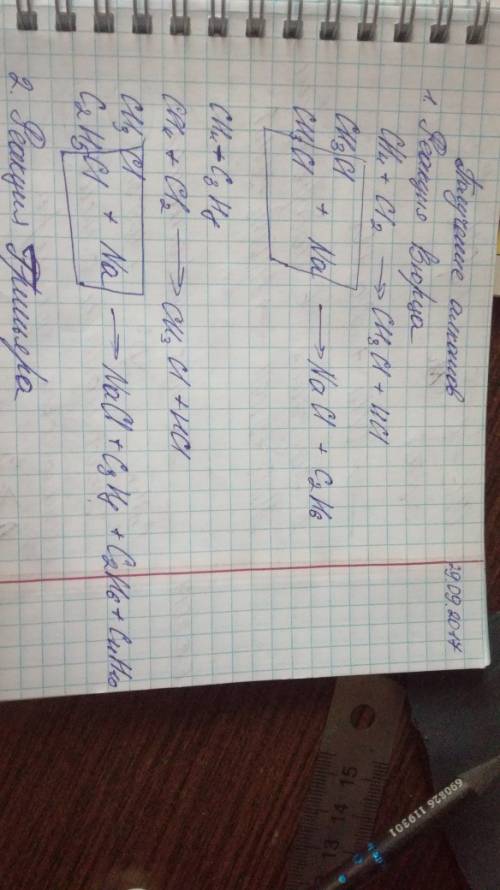 29.09.2017
Получение алканов
1. Реакция Вюрца
CH4 + Cl2 → CH3Cl + HCl
CH3Cl
CH3Cl + Na → NaCl + C2H6
CH4 + C3H8
CH4 + Cl2 → CH3Cl + HCl
CH3Cl
C2H5Cl + Na → NaCl + C3H8 + C2H6 + C4H10
2. Реакция Гриньяра
15
14
13
12
690826 119301